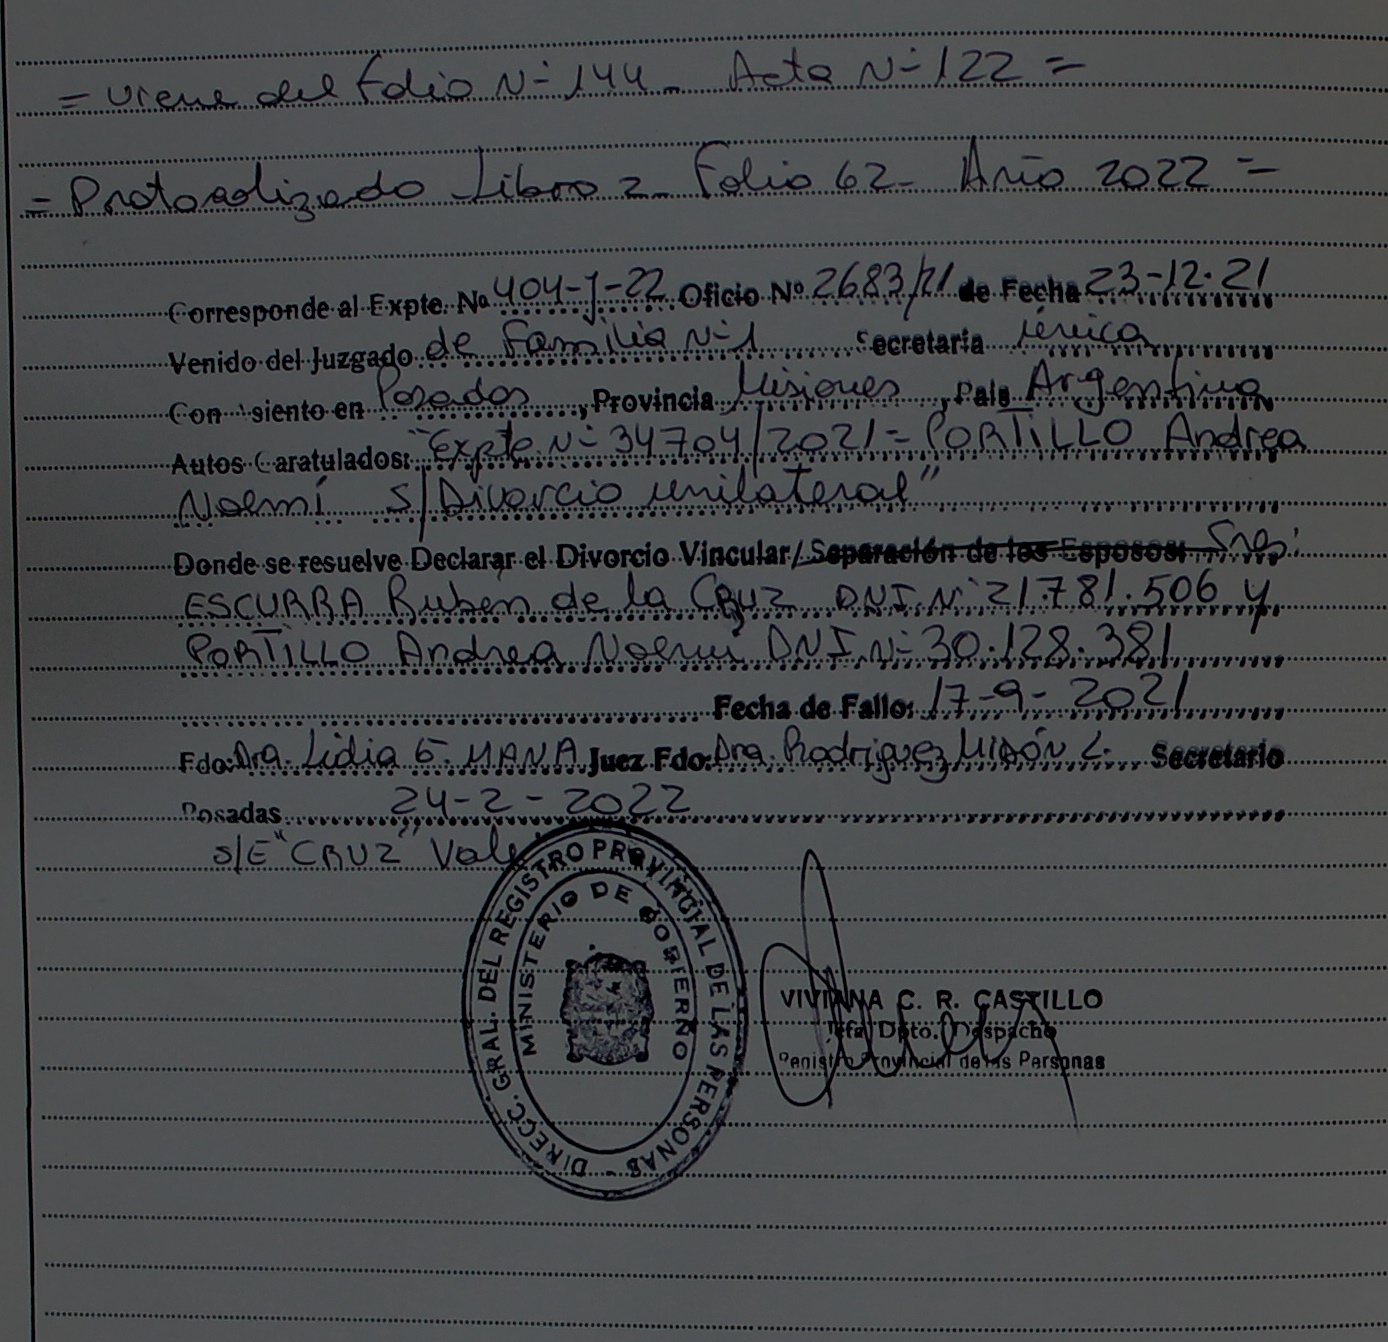 = Viene del Folio N° 144 - Acta N° 122 =
= Protocolizado Libro 2 - Folio 62 - Año 2022 =
Corresponde al Expte. Nº 404-J-22 Oficio Nº 2683/21 de Fecha 23-12-21
Venido del Juzgado de Familia N° 1 Secretaria única
Con siento en Posadas, Provincia Misiones, Pais Argentina
Autos Caratulados: "Expte N° 34704/2021 = PORTILLO Andrea
Noemí S/Divorcio unilateral"
Donde se resuelve Declarar el Divorcio Vincular/Separación de los Esposos: Sres:
ESCURRA Ruben de la CRUZ DNI. N° 21.781.506 y
PORTILLO Andrea Noemí DNI. N° 30.128.381
Fecha de Fallo: 17-9-2021
Fdo: Dra. Lidia E. MANA Juez Fdo: Dra. Rodriguez MIDÓN L. Secretario
Posadas 24-2-2022
S/E "CRUZ" Vale
DIRECC. GRAL. DEL REGISTRO PROVINCIAL DE LAS PERSONAS -
MINISTERIO DE GOBIERNO
VIVIANA C. R. CASTILLO
Jefa Dpto. Despacho
Registro Provincial de las Personas